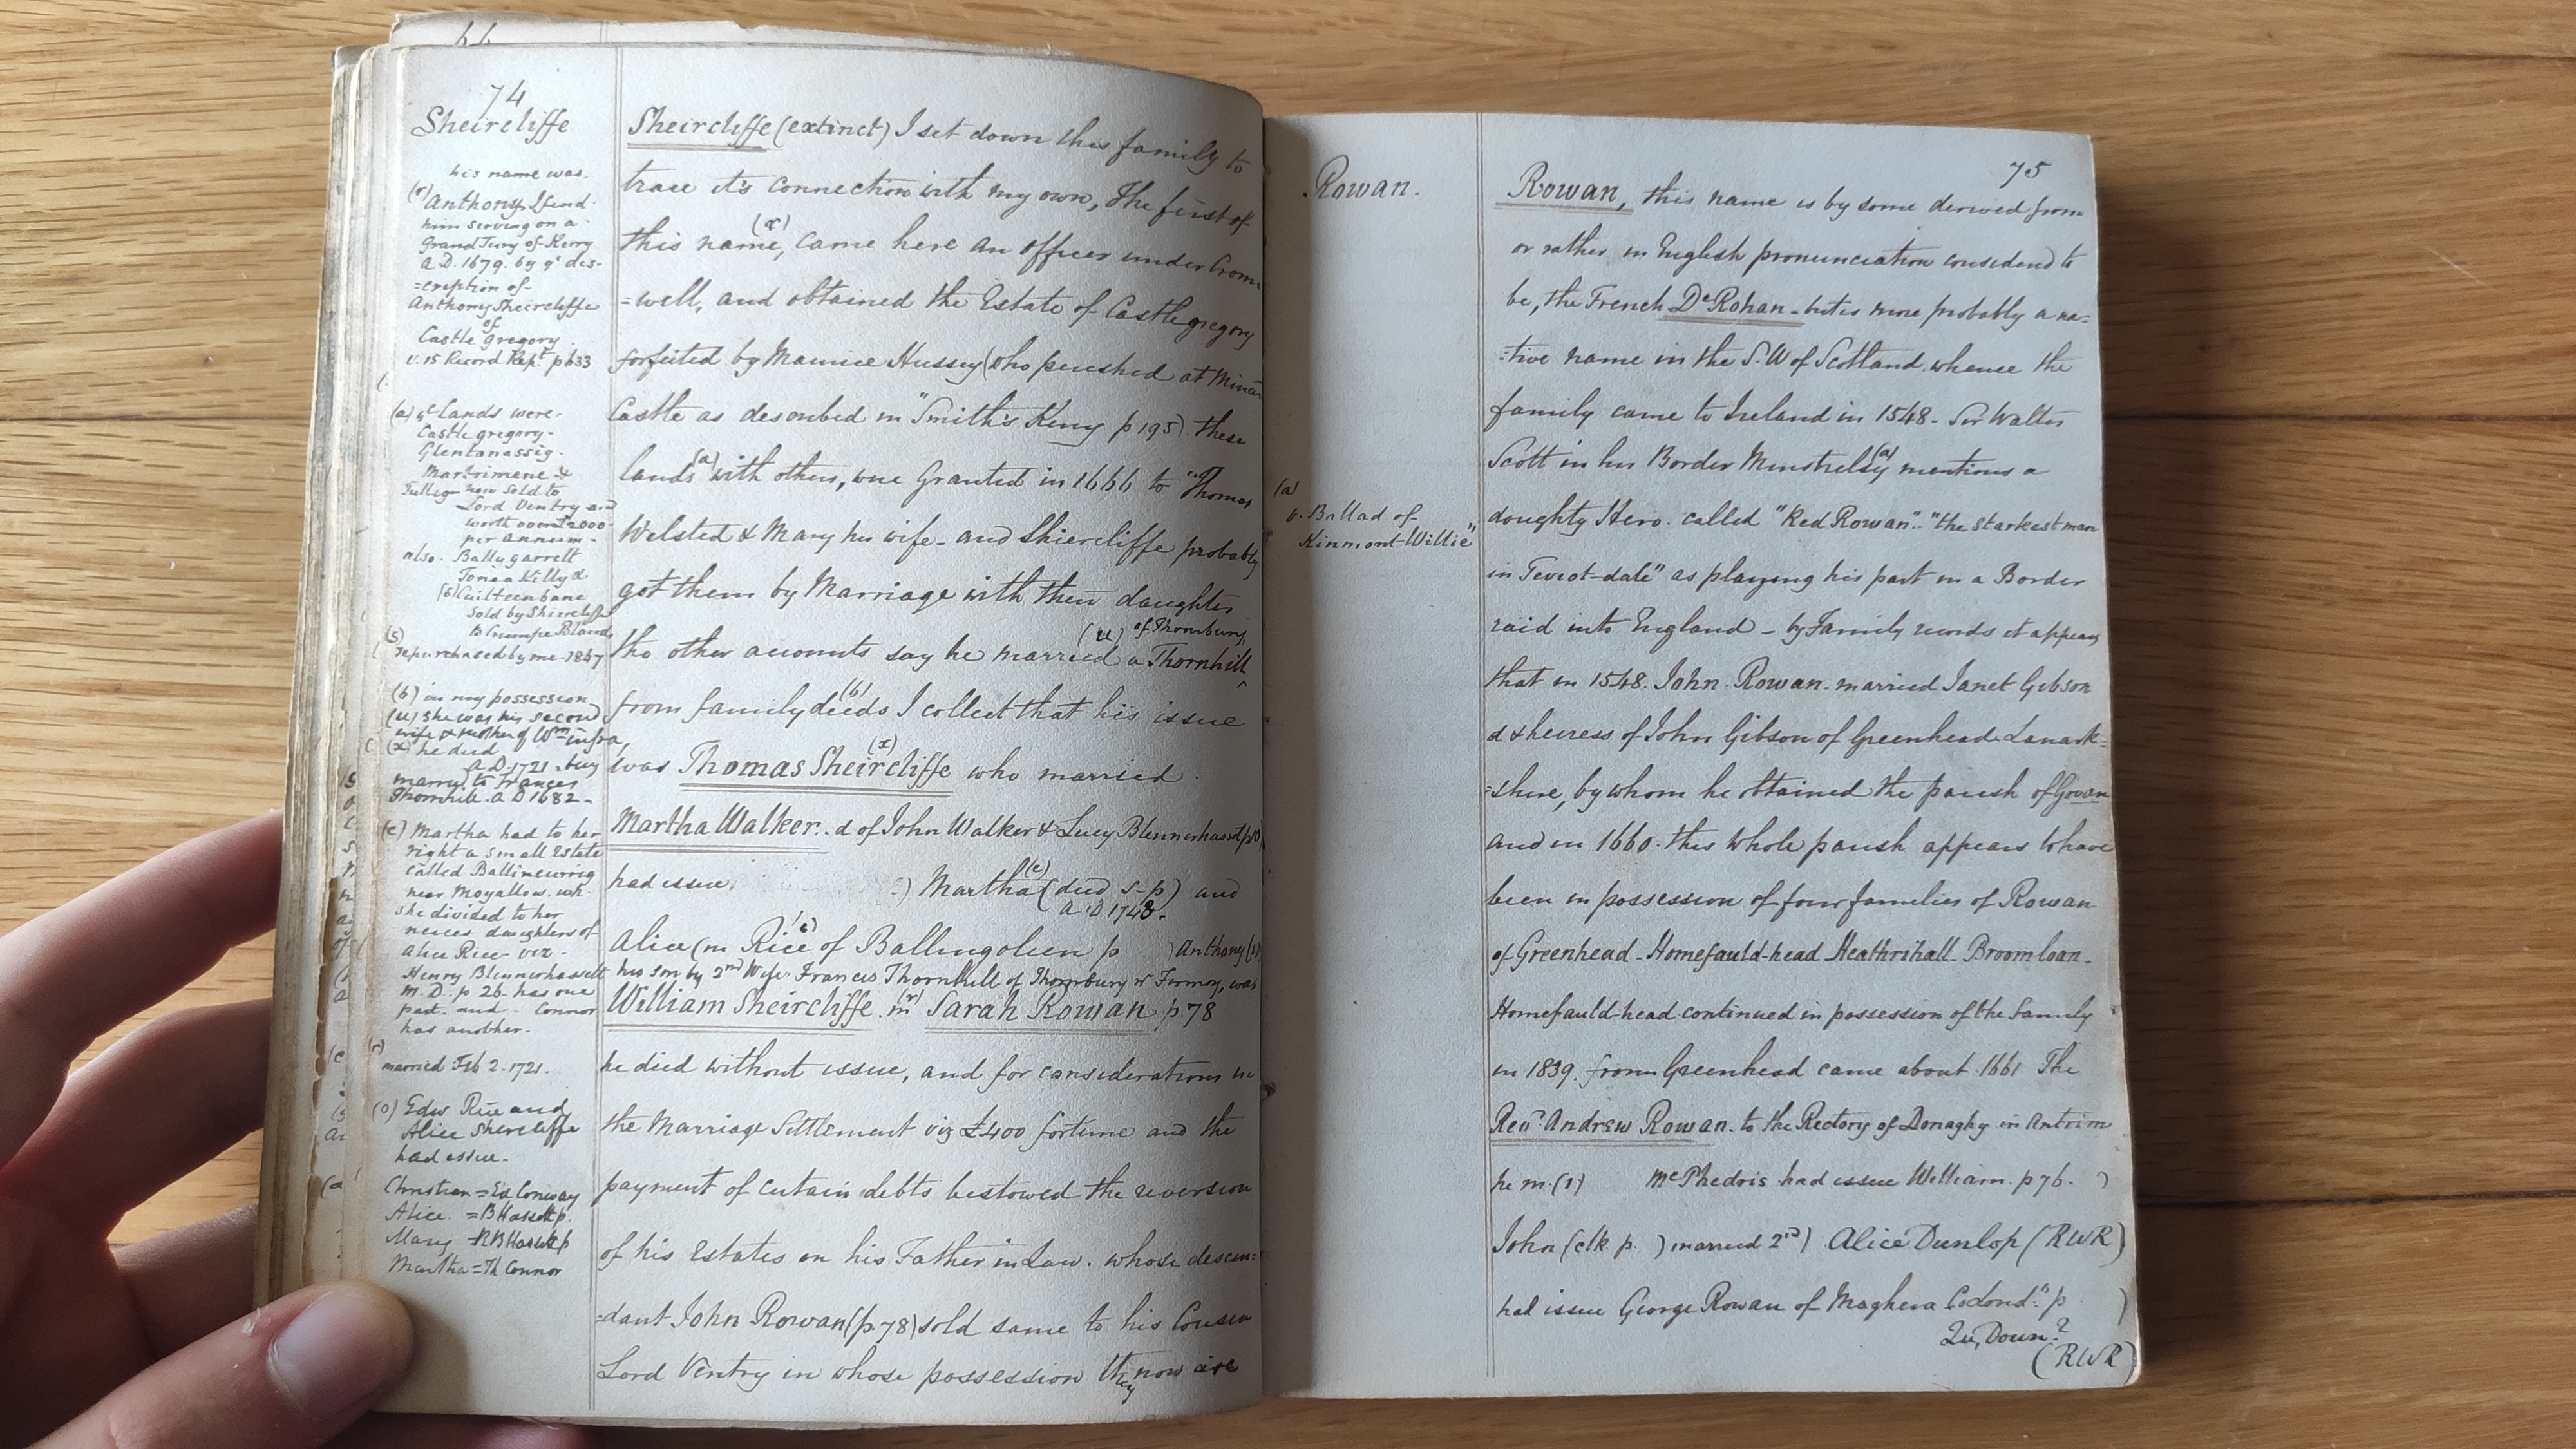 64
74
Sheircliffe
his name was
(r) Anthony I find
him serving on a
Grand Jury of Kerry
A.D. 1679. by ye des-
=cription of
Anthony Sheircliffe
of
Castle gregory
v. 15 Record Rept. p 633
(a) ye Lands were
Castle gregory-
Glentanassig-
Martrimene &
Tullig now sold to
Lord Ventry and
worth over £2000
per annum-
also. Ballygarrett
Tonea Killy &
(s) Cuilteenbane
sold by Sheircliffe
(s)
repurchased by me-1867
(b) in my possession
(u) she was his second
wife & mother of Wm infra,
(x) he died
A.D. 1721. buy
marrd. to Frances
Thornhill. A D 1682-
(c) Martha had to her
right a small Estate
called Ballincurrig
near Moyallow. wh-
she divided to her
neices daughters of
Alice Rice viz-
Henry Blennerhassett
M.D. p 26 has one
part. and - Connor
has another-
(r)
married Feb 2. 1721.
(o) Edw Rice and
Alice Sheircliffe
had issue-
Christian = Ed Conway
Alice. = B Hassett p.
Mary = R B Hassett p
Martha = Th Connor
Sheircliffe (extinct) I set down this family to
trace it's connection with my own, The first of
this name, (x) came here an officer under Crom-
=well, and obtained the Estate of Castlegregory
forfeited by Maurice Hussey (who perished at Minar
Castle as described in "Smith's Kerry p 195) these
lands (a) with others, were Granted in 1666 to "Thomas
Welsted & Mary his wife- and Shiercliffe probably
got them by Marriage with their daughter
(u) of Thornbury,
tho other accounts say he married a Thornhill
from family deeds (b) I collect that his issue
was Thomas Sheircliffe (x) who married
Martha Walker. d of John Walker & Lucy Blennerhassett
had issue. ) Martha (c) (died s-p) and
A.D 1748.
Alice (m Rice of Ballingolien p ) Anthony
his son by 2nd Wife Frances Thornhill of Thornbury nr Fermoy, was
William Sheircliffe. m (r) Sarah Rowan p 78
he died without issue, and for considerations in
the Marriage Settlement viz £400 fortune and the
payment of certain debts bestowed the reversion
of his Estates on his Father in Law. whose descen=
=dant John Rowan (p 78) sold same to his Cousin
Lord Ventry in whose possession they now are
75
Rowan.
(a)
v. Ballad of
Kinmont-Willie"
Rowan, this name is by some derived from
or rather in English pronunciation considered to
be, the French De Rohan - but is more probably a na=
=tive name in the S.W of Scotland. whence the
family came to Ireland in 1548- Sir Walter
Scott in his Border Minstrelsy (a) mentions a
doughty Hero. called "Red Rowan". "the starkest man
in Teviot-dale" as playing his part in a Border
raid into England - by Family records it appears
that in 1548. John Rowan. married Janet Gibson
d & heiress of John Gibson of Greenhead Lanark-
=shire, by whom he obtained the parish of Govan
and in 1660. this whole parish appears to have
been in possession of four families of Rowan
of Greenhead - Homefauld-head - Heathrihall - Broomloan -
Homefauld-head continued in possession of the family
in 1839. from Greenhead came about 1661 The
Revd. Andrew Rowan. to the Rectory of Donaghy in Antrim
he m. (1) McPhedris had issue William. p 76. )
John (clk p. ) married 2nd) Alice Dunlop (RWR)
had issue George Rowan of Maghera Co Lond." p )
Qu, Down?
(RWR)